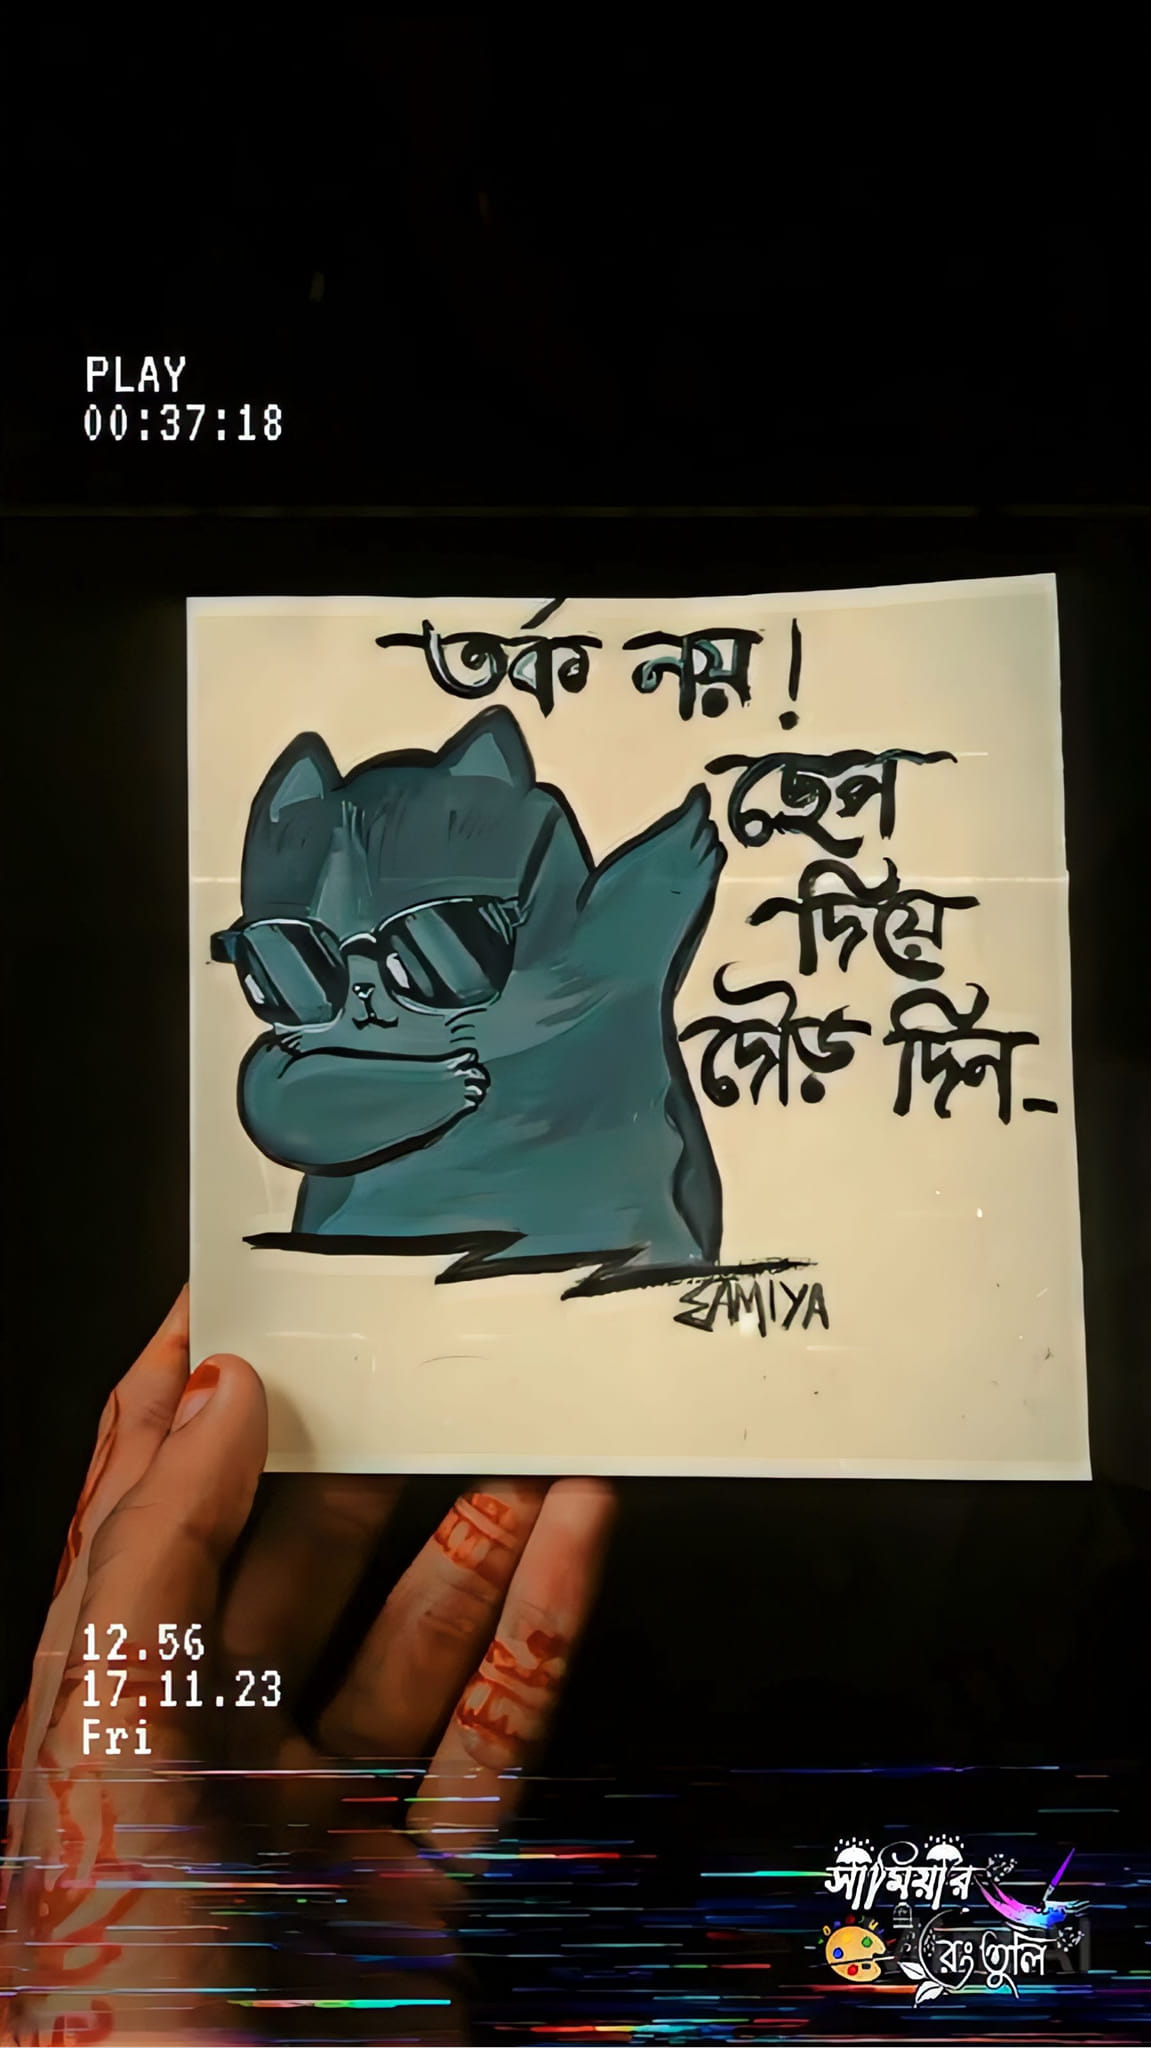 PLAY
00:37:18
তর্ক নয়!
ছেপ
দিয়ে
দৌড় দিন-
SAMIYA
12.56
17.11.23
Fri
সামিয়ার
রংতুলি